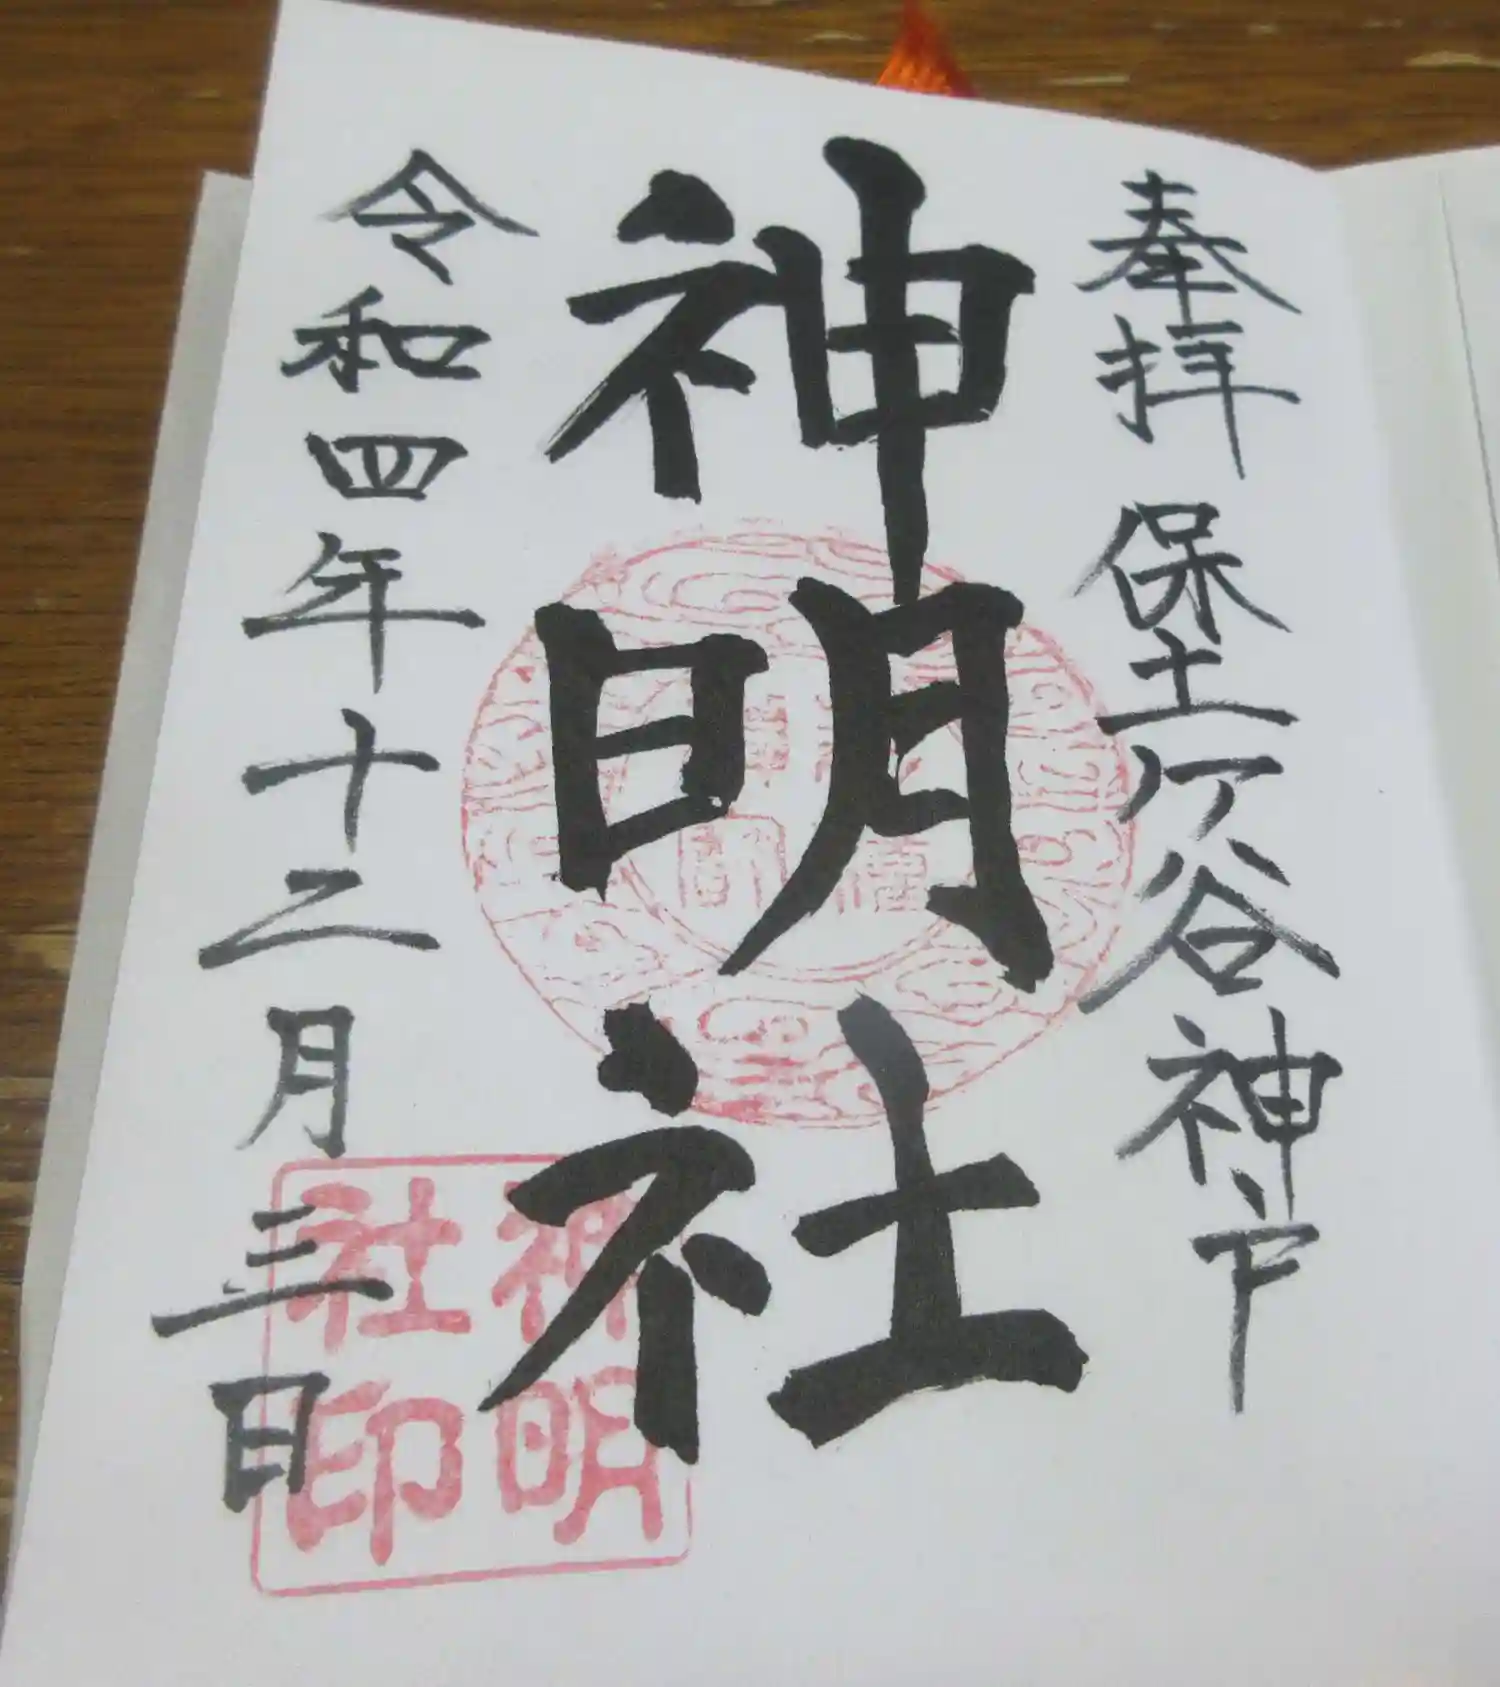 奉拝 保土ヶ谷神戸
神明社
令和四年十二月三日
神明
社印